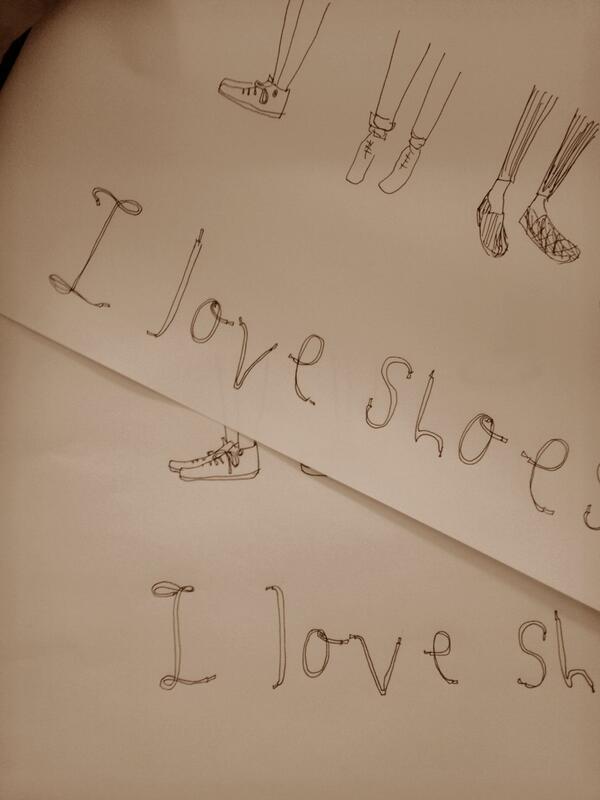 I love shoes
I love sh